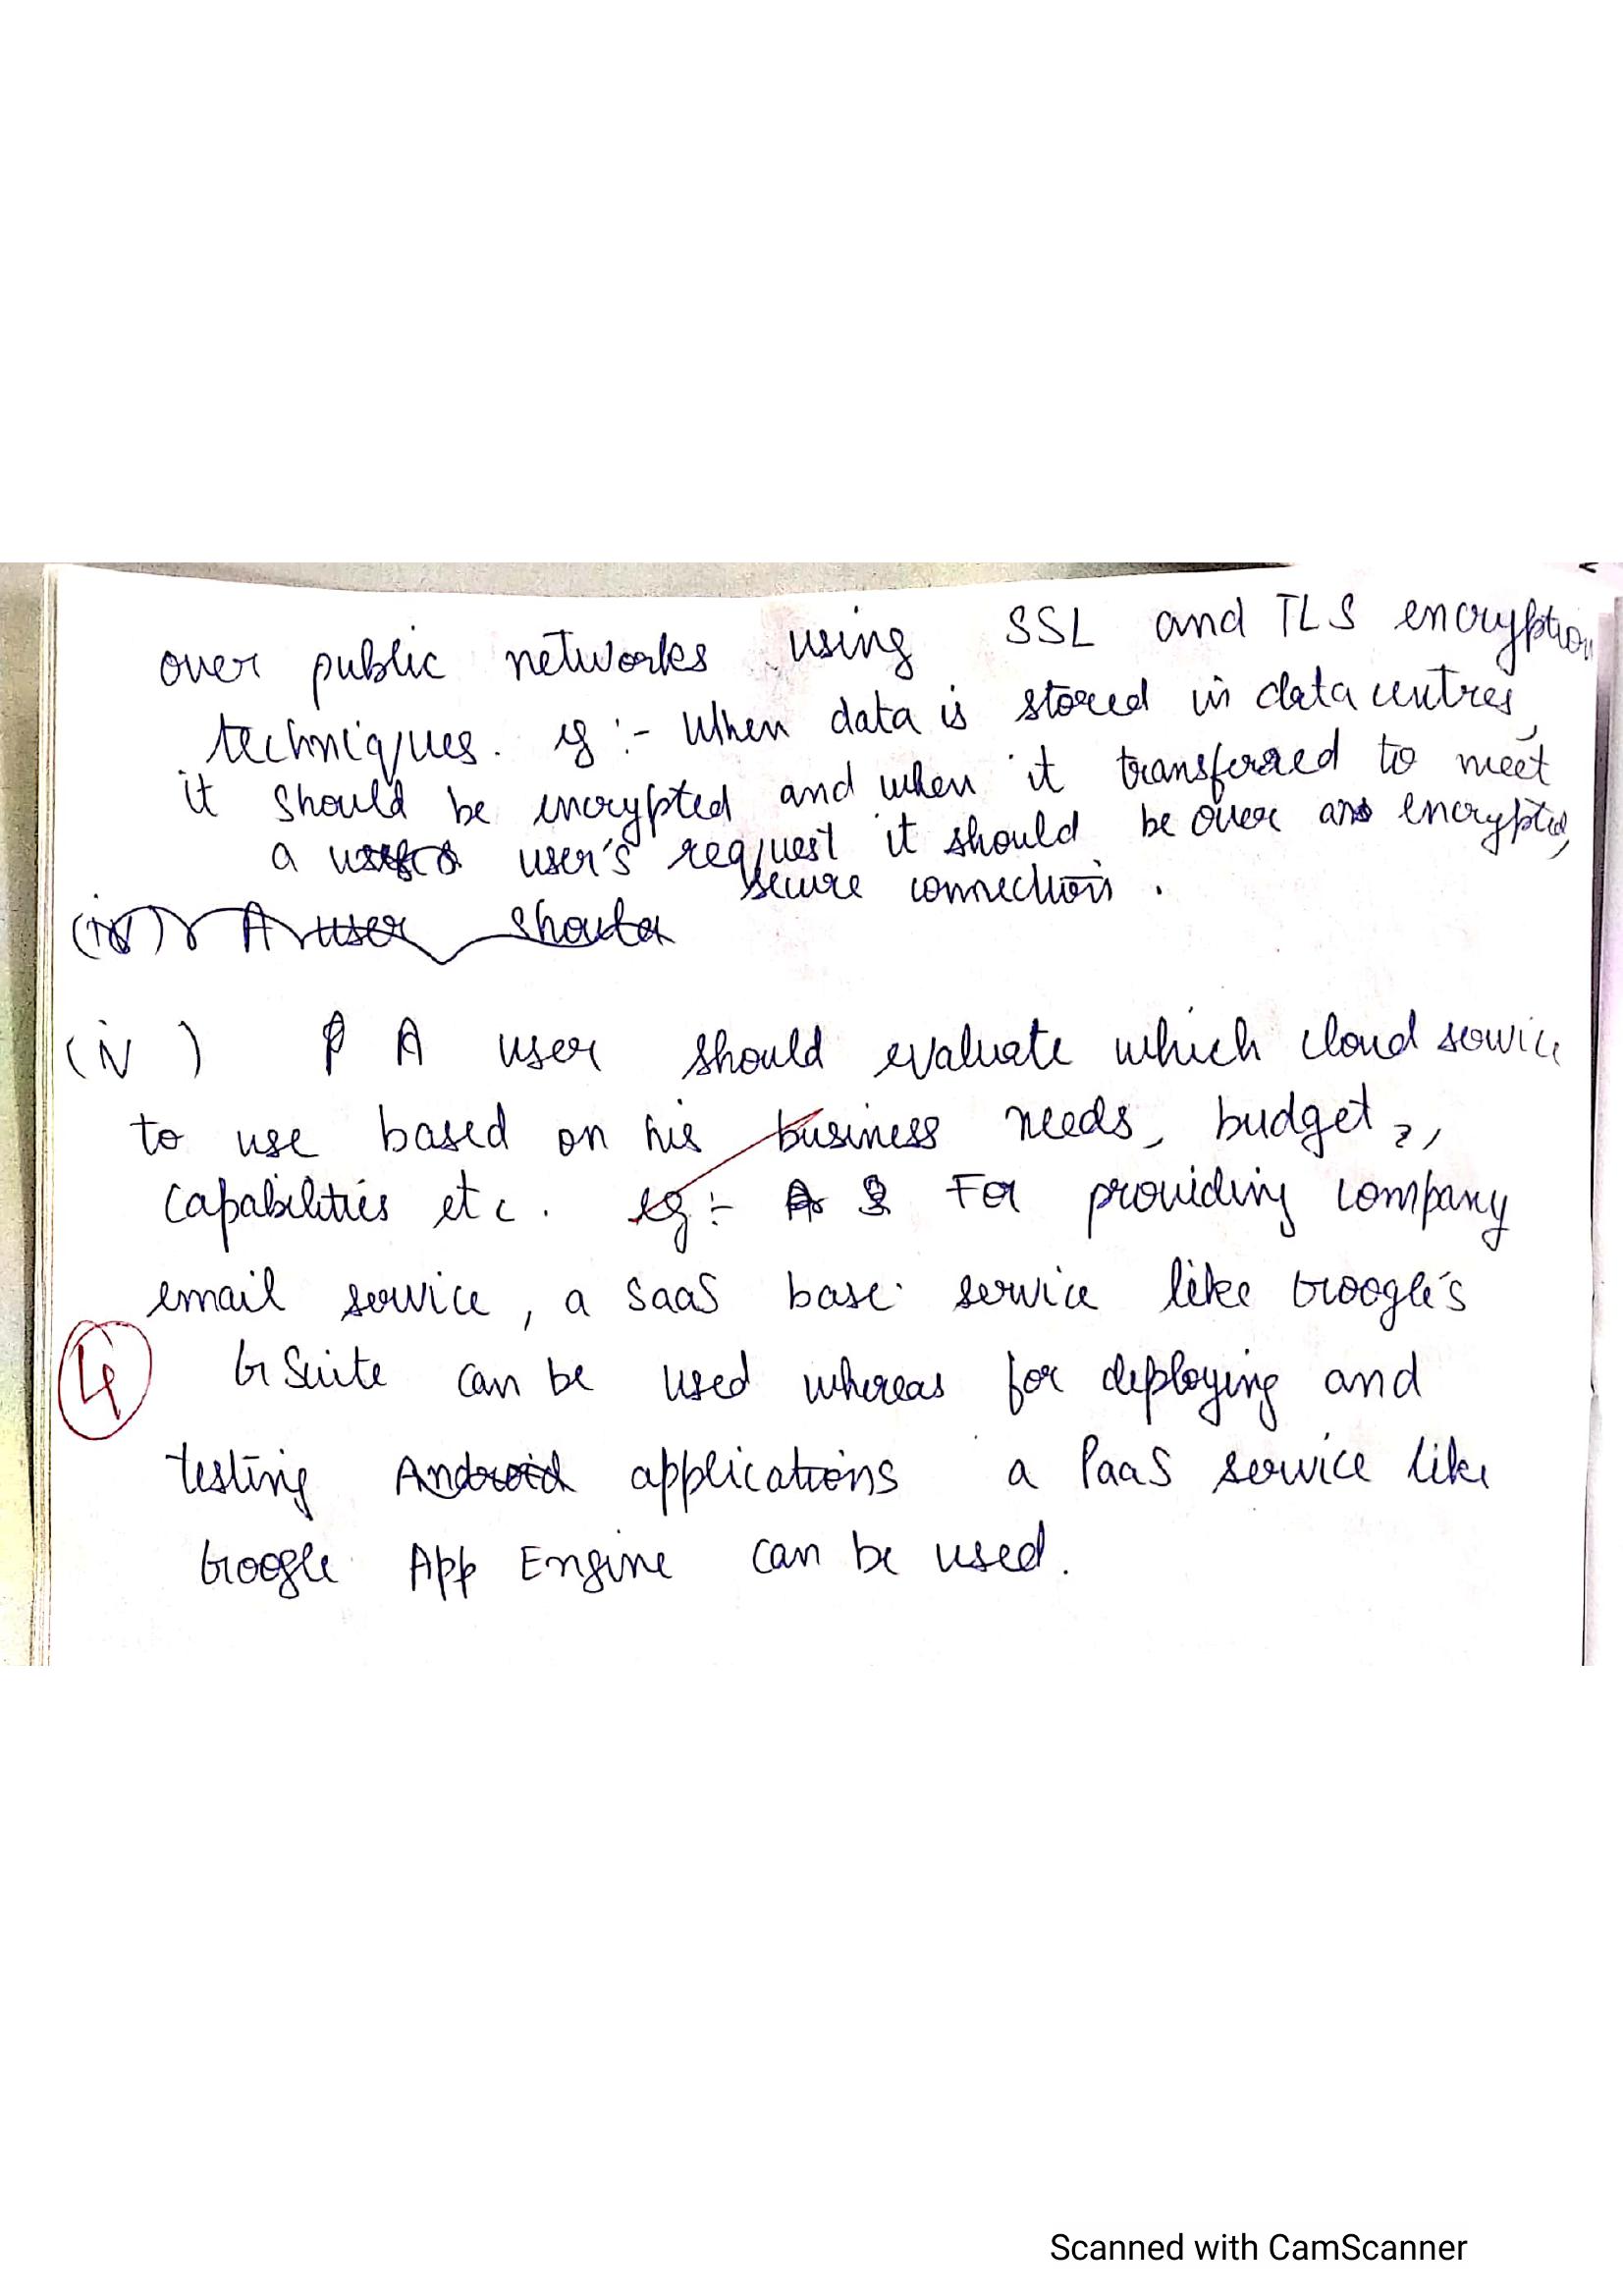 over public networks using SSL and TLS encryption
techniques. eg :- When data is stored in data centres,
it should be encrypted and when it transferred to meet
a user's request it should be over an encrypted,
secure connection.
(iv) A user should
(iv) A user should evaluate which cloud service
to use based on his business needs, budget,
capabilities etc. eg :- For providing company
email service, a SaaS base service like Google's
G Suite can be used whereas for deploying and
4
testing Android applications a PaaS service like
Google App Engine can be used.
Scanned with CamScanner